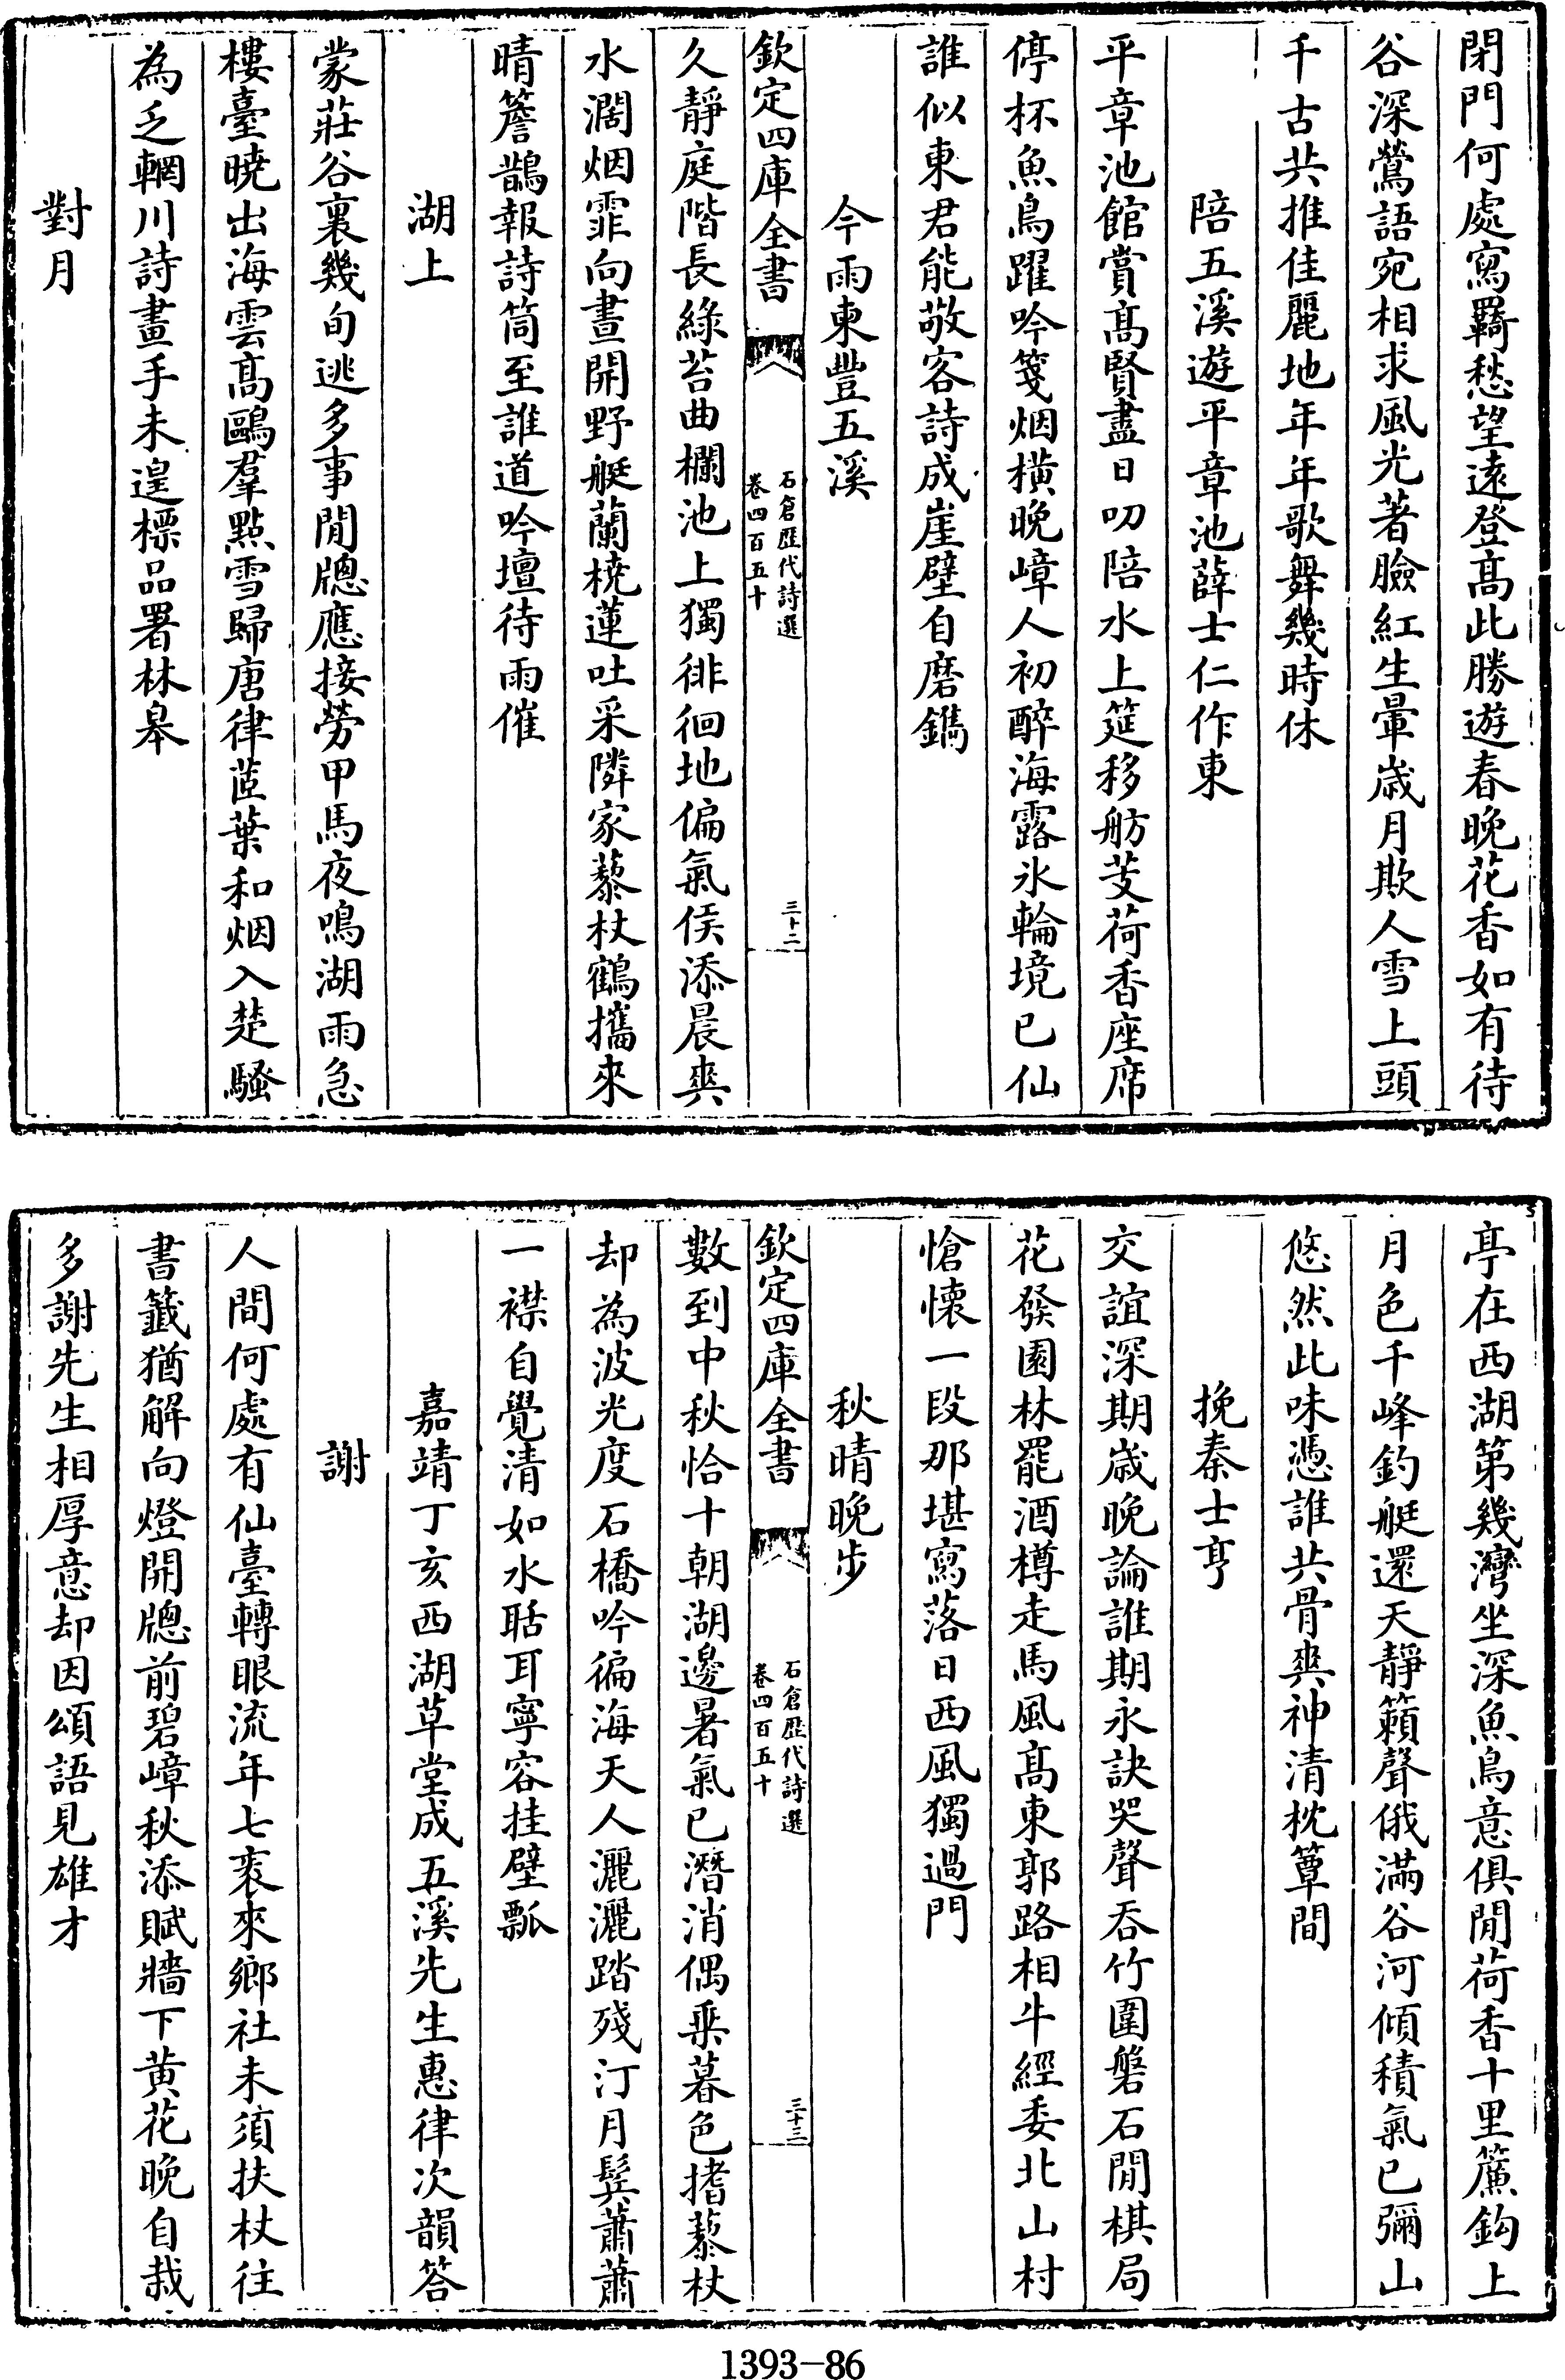 閉門何處寫羇愁望遠登髙此勝遊春晚花香如有待
谷深鶯語宛相求風光著臉紅生暈歲月欺人雪上頭
千古共推佳麗地年年歌舞幾時休
陪五溪遊平章池薛士仁作東
平章池館賞髙賢盡日叨陪水上筵移舫芰荷香座席
停杯魚鳥躍吟箋烟橫晚嶂人初醉海露氷輪境已仙
誰似東君能敬客詩成崖壁自磨鐫
今雨東豐五溪
欽定四庫全書
石倉歷代詩選
卷四百五十
三十二
久靜庭階長綠苔曲欄池上獨徘徊地偏氣侯添晨爽
水濶烟霏向晝開野艇蘭橈蓮吐采隣家藜杖鶴攜來
晴簷鵲報詩筒至誰道吟壇待雨催
湖上
蒙莊谷裏幾旬逃多事閒牕應接勞甲馬夜鳴湖雨急
樓臺曉出海雲髙鷗羣點雪歸唐律苣葉和烟入楚騷
為乏輞川詩畫手未遑標品署林皋
對月
亭在西湖第幾灣坐深魚鳥意俱閒荷香十里簾鈎上
月色千峰釣艇還天靜籟聲俄滿谷河傾積氣已彌山
悠然此味憑誰共骨爽神清枕簟間
挽秦士亨
交誼深期歲晚論誰期永訣哭聲吞竹圍磐石閒棋局
花發園林罷酒樽走馬風髙東郭路相牛經委北山村
愴懷一段那堪寫落日西風獨過門
秋晴晚步
欽定四庫全書
石倉歷代詩選
卷四百五十
三十三
數到中秋恰十朝湖邊暑氣已潛消偶乘暮色搘藜杖
却為波光度石橋吟徧海天人灑灑踏殘汀月髩蕭蕭
一襟自覺清如水聒耳寧容挂壁瓢
嘉靖丁亥西湖草堂成五溪先生惠律次韻答
謝
人間何處有仙臺轉眼流年七袠來鄉社未須扶杖往
書籤猶解向燈開牕前碧嶂秋添賦牆下黄花晚自栽
多謝先生相厚意却因頌語見雄才
1393—86